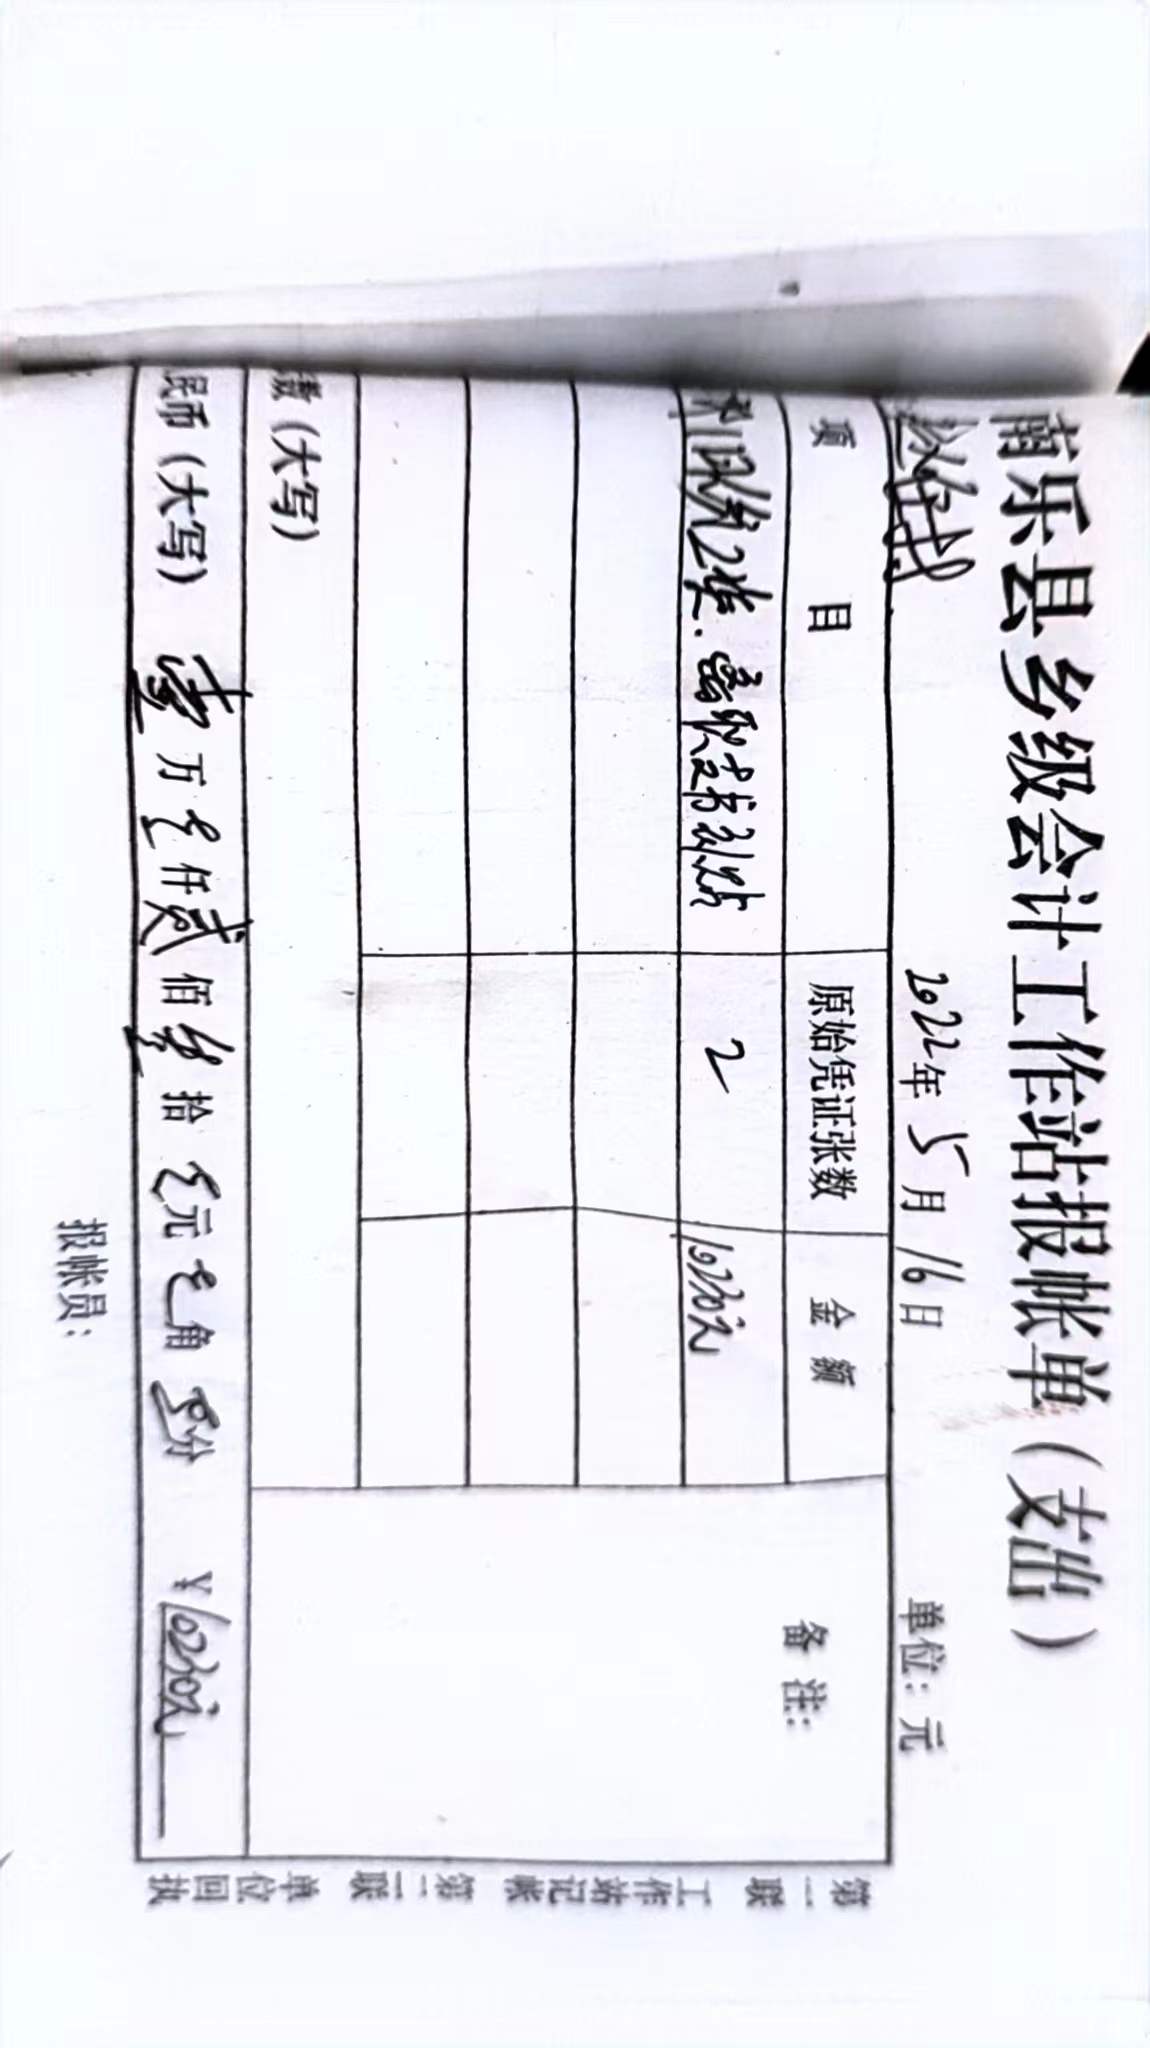 南乐县乡级会计工作站报帐单（支出）
2022年 5月 16日 单位：元
项 目 原始凭证张数 金 额 备 注：
2 10230元
(大写)
民币（大写） 壹万零仟贰佰叁拾零元零角零分 ¥10230元
报帐员：
第一联 工作站记帐 第二联 单位回执